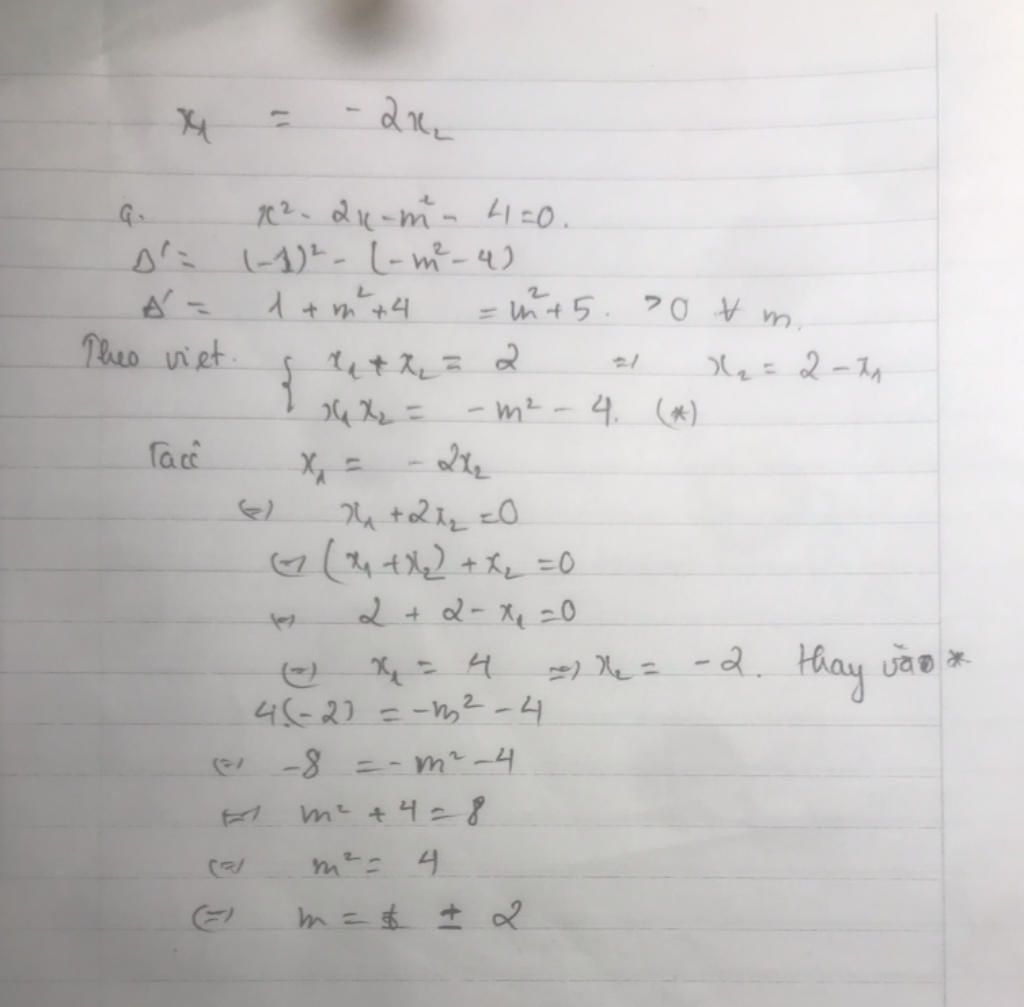 x₁ = -2x₂
a. x² - 2x - m² - 4 = 0.
Δ' = (-1)² - (-m² - 4)
Δ' = 1 + m² + 4 = m² + 5. > 0 ∀ m.
Theo viet. { x₁ + x₂ = 2 => x₂ = 2 - x₁
x₁x₂ = -m² - 4. (*)
Ta có x₁ = -2x₂
<=> x₁ + 2x₂ = 0
<=> (x₁ + x₂) + x₂ = 0
<=> 2 + 2 - x₁ = 0
<=> x₁ = 4 => x₂ = -2. thay vào *
4(-2) = -m² - 4
<=> -8 = -m² - 4
<=> m² + 4 = 8
<=> m² = 4
<=> m = ± 2